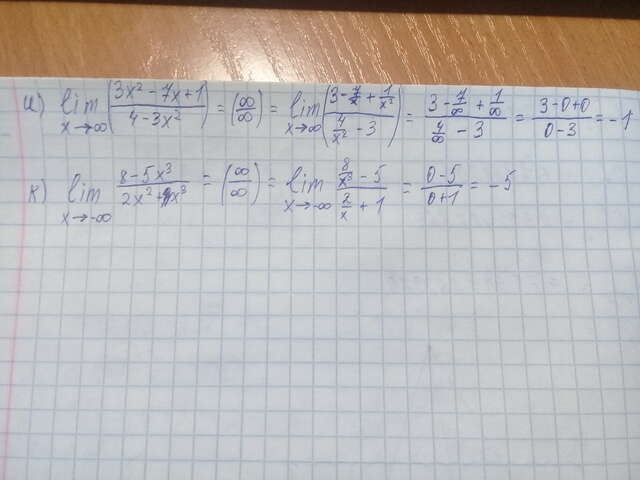 и) lim x→∞ (3x² - 7x + 1 / 4 - 3x²) = (∞/∞) = lim x→∞ (3 - 7/x + 1/x² / 4/x² - 3) = 3 - 7/∞ + 1/∞ / 4/∞ - 3 = 3 - 0 + 0 / 0 - 3 = -1
к) lim x→-∞ 8 - 5x³ / 2x² + x³ = (∞/∞) = lim x→-∞ 8/x³ - 5 / 2/x + 1 = 0 - 5 / 0 + 1 = -5